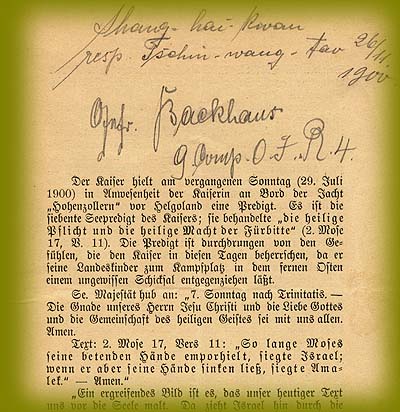 Shang-hai-kwan
resp. Tschin-wang-tao 26/11.
1900
Gefr. Backhaus
9 Comp. O. J. R. 4.
Der Kaiser hielt am vergangenen Sonntag (29. Juli
1900) in Anwesenheit der Kaiserin an Bord der Jacht
„Hohenzollern“ vor Helgoland eine Predigt. Es ist die
siebente Seepredigt des Kaisers; sie behandelte „die heilige
Pflicht und die heilige Macht der Fürbitte“ (2. Mose
17, V. 11). Die Predigt ist durchdrungen von den Ge-
fühlen, die den Kaiser in diesen Tagen beherrschen, da er
seine Landeskinder zum Kampfplatz in dem fernen Osten
einem ungewissen Schicksal entgegenziehen läßt.
Se. Majestät hub an: „7. Sonntag nach Trinitatis. —
Die Gnade unseres Herrn Jesu Christi und die Liebe Gottes
und die Gemeinschaft des heiligen Geistes sei mit uns allen.
Amen.
Text: 2. Mose 17, Vers 11: „So lange Moses
seine betenden Hände emporhielt, siegte Israel;
wenn er aber seine Hände sinken ließ, siegte Ama-
lek.“ — Amen.“
„Ein ergreifendes Bild ist es, das unser heutiger Text
uns vor die Seele malt. Da zieht Israel hin durch die